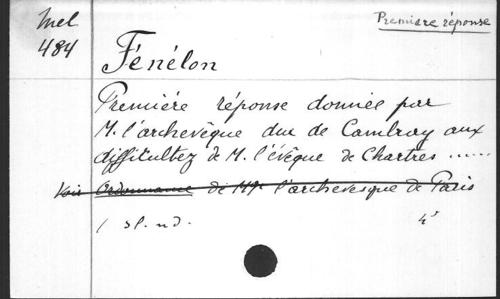 Mel
484
Première réponse
Fénélon
Première réponse donnée par
M. l'archevêque duc de Cambray aux
difficultez de M. l'évêque de Chartres ......
Voir Ordonnance de Mgr l'archevesque de Paris
/ sl. nd. 4°